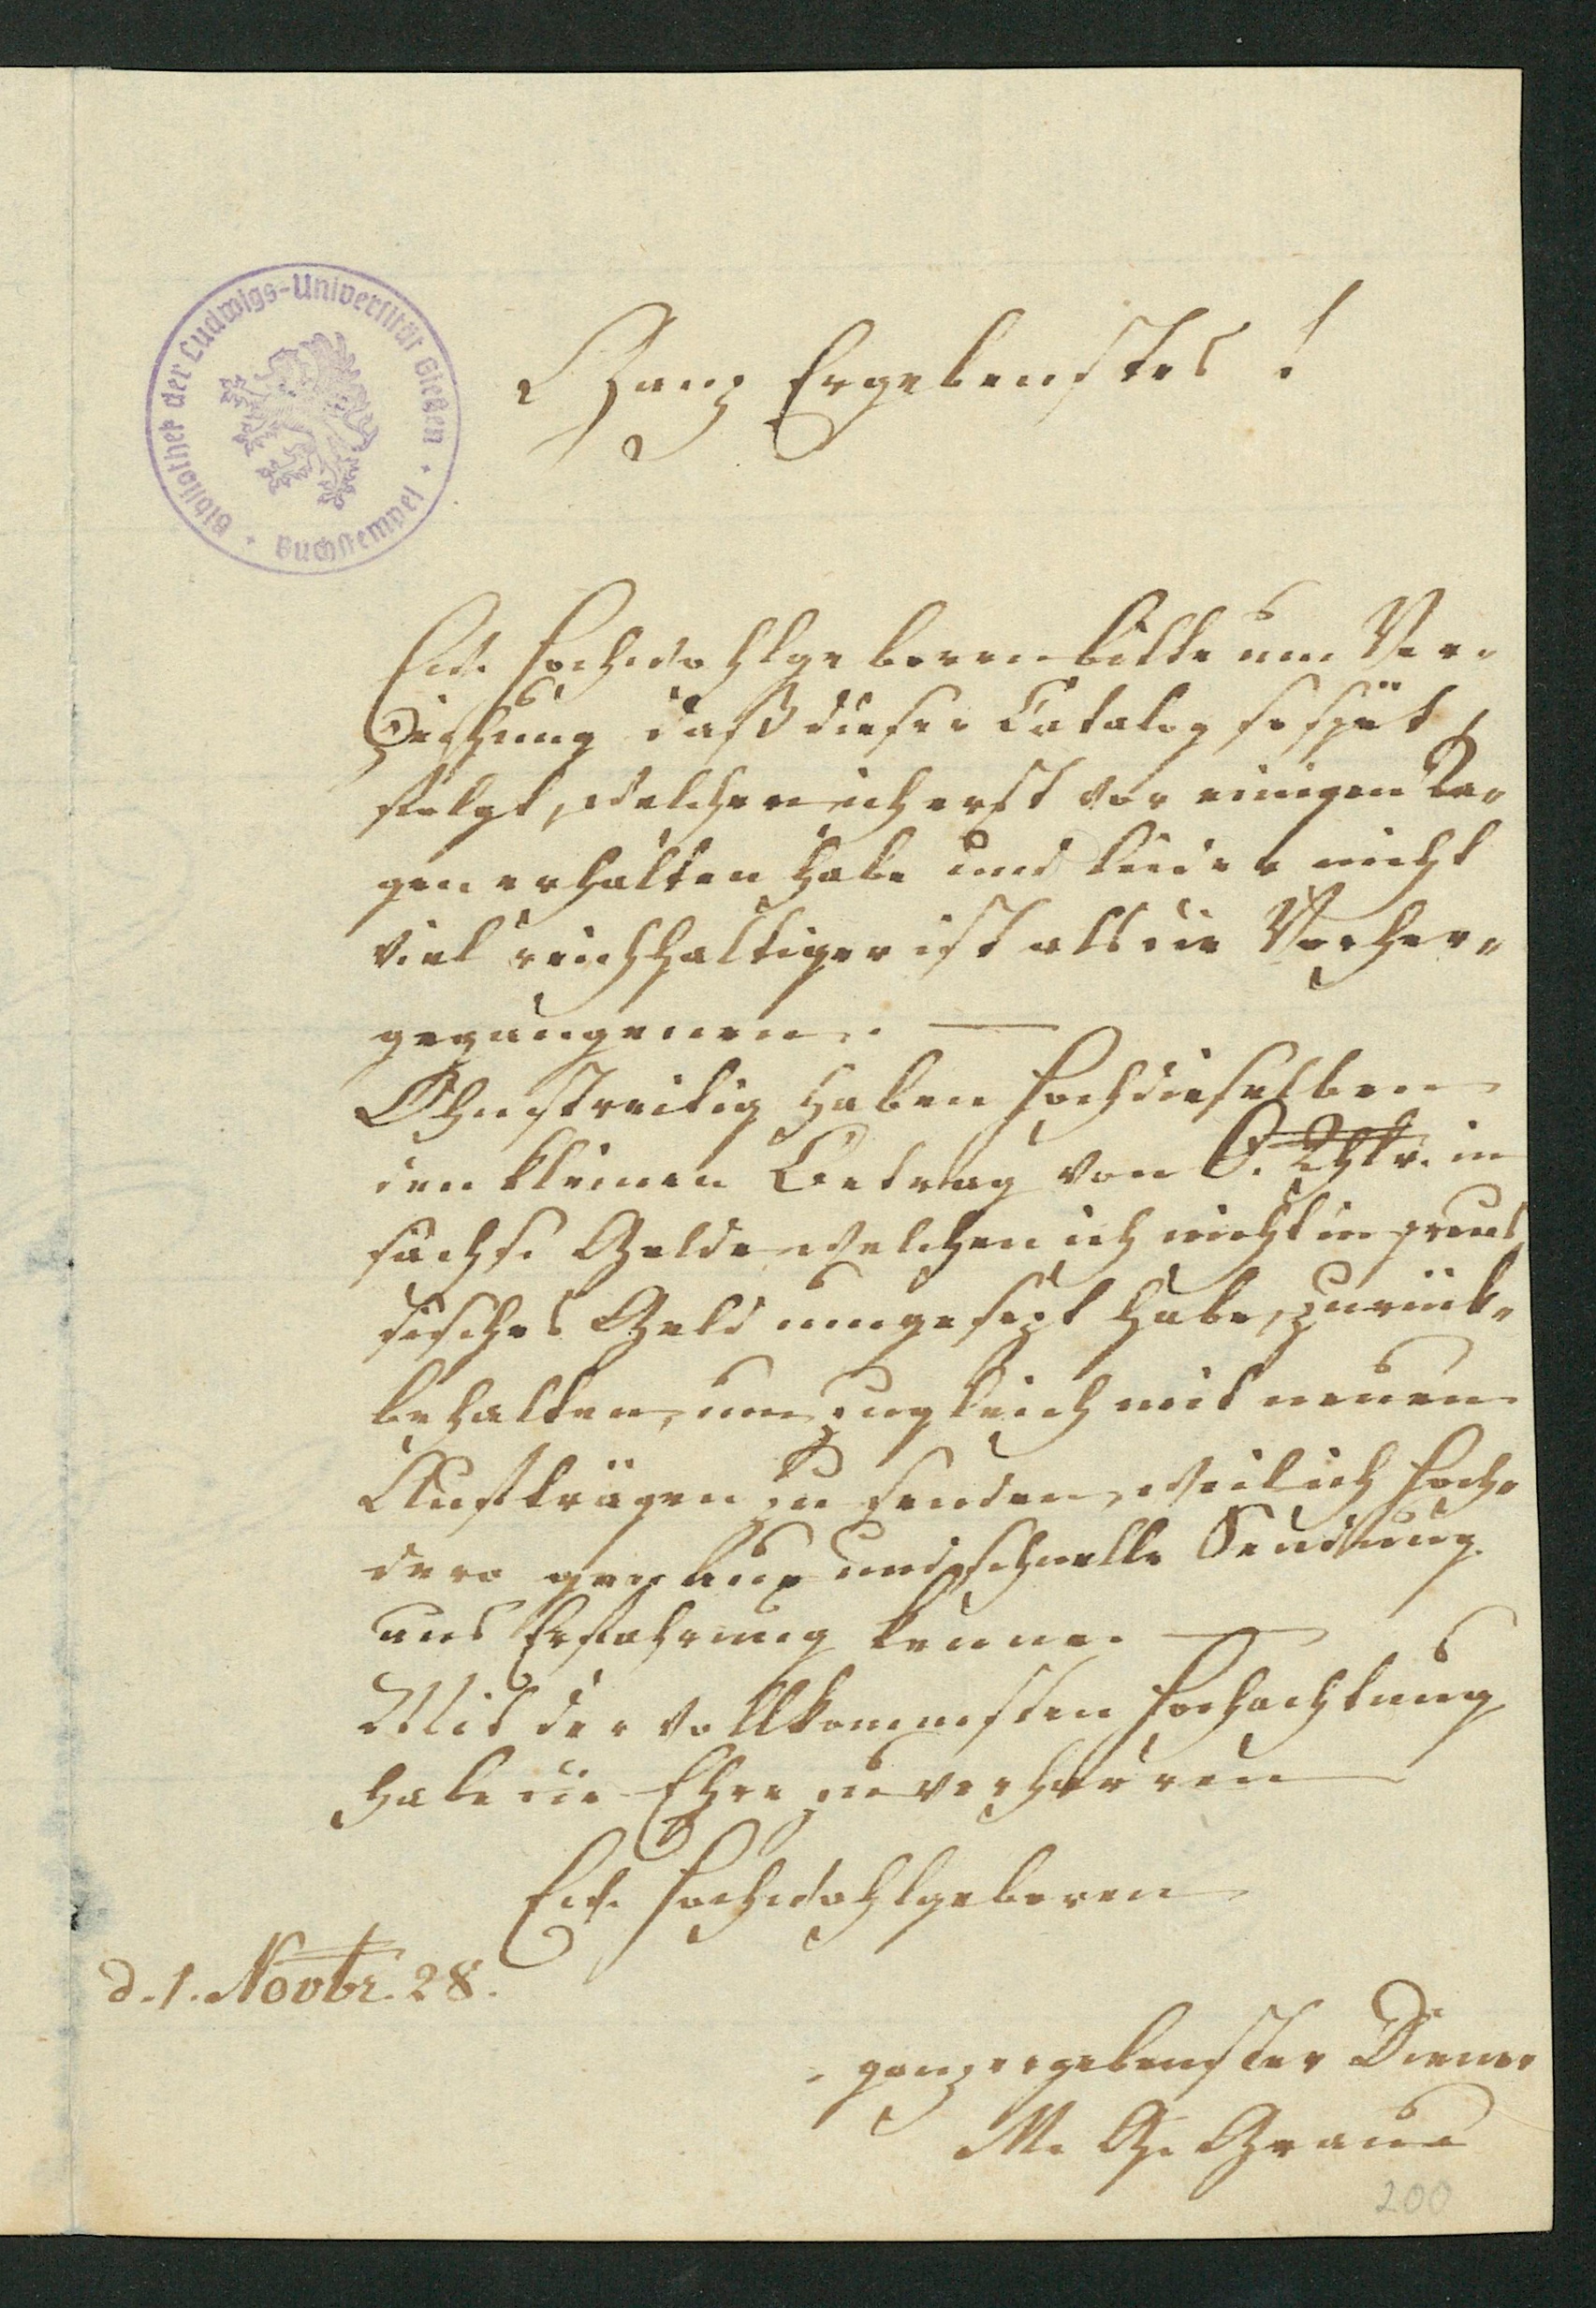 Bibliothek der Ludwigs-Universität Gießen
Buchstempel
Ganz Ergebenstes!
Ew. Hochwohlgeboren bitte um Ver-
zeihung daß dieser Catalog so spät
folgt, welchen ich erst vor einigen Ta-
gen erhalten habe und leider nicht
viel reichhaltiger ist als die Vorher-
gegangenen. —
Ohnstreitig haben Hochdieselben
den kleinen Betrag von Thlr. in
sächs. Gelde welchen ich nicht in preus
sisches Geld umgesezt habe, zurück-
behalten, um zugleich mit neuen
Aufträgen zu senden, weil ich Hoch-
dero genaue und schnelle Sendung
aus Erfahrung kenne. —
Mit der vollkommsten Hochachtung
habe die Ehre zu verharren
Ew. Hochwohlgeboren
d. 1. Novbr. 28.
ganz ergebenster Diener
M. G. Graue
200